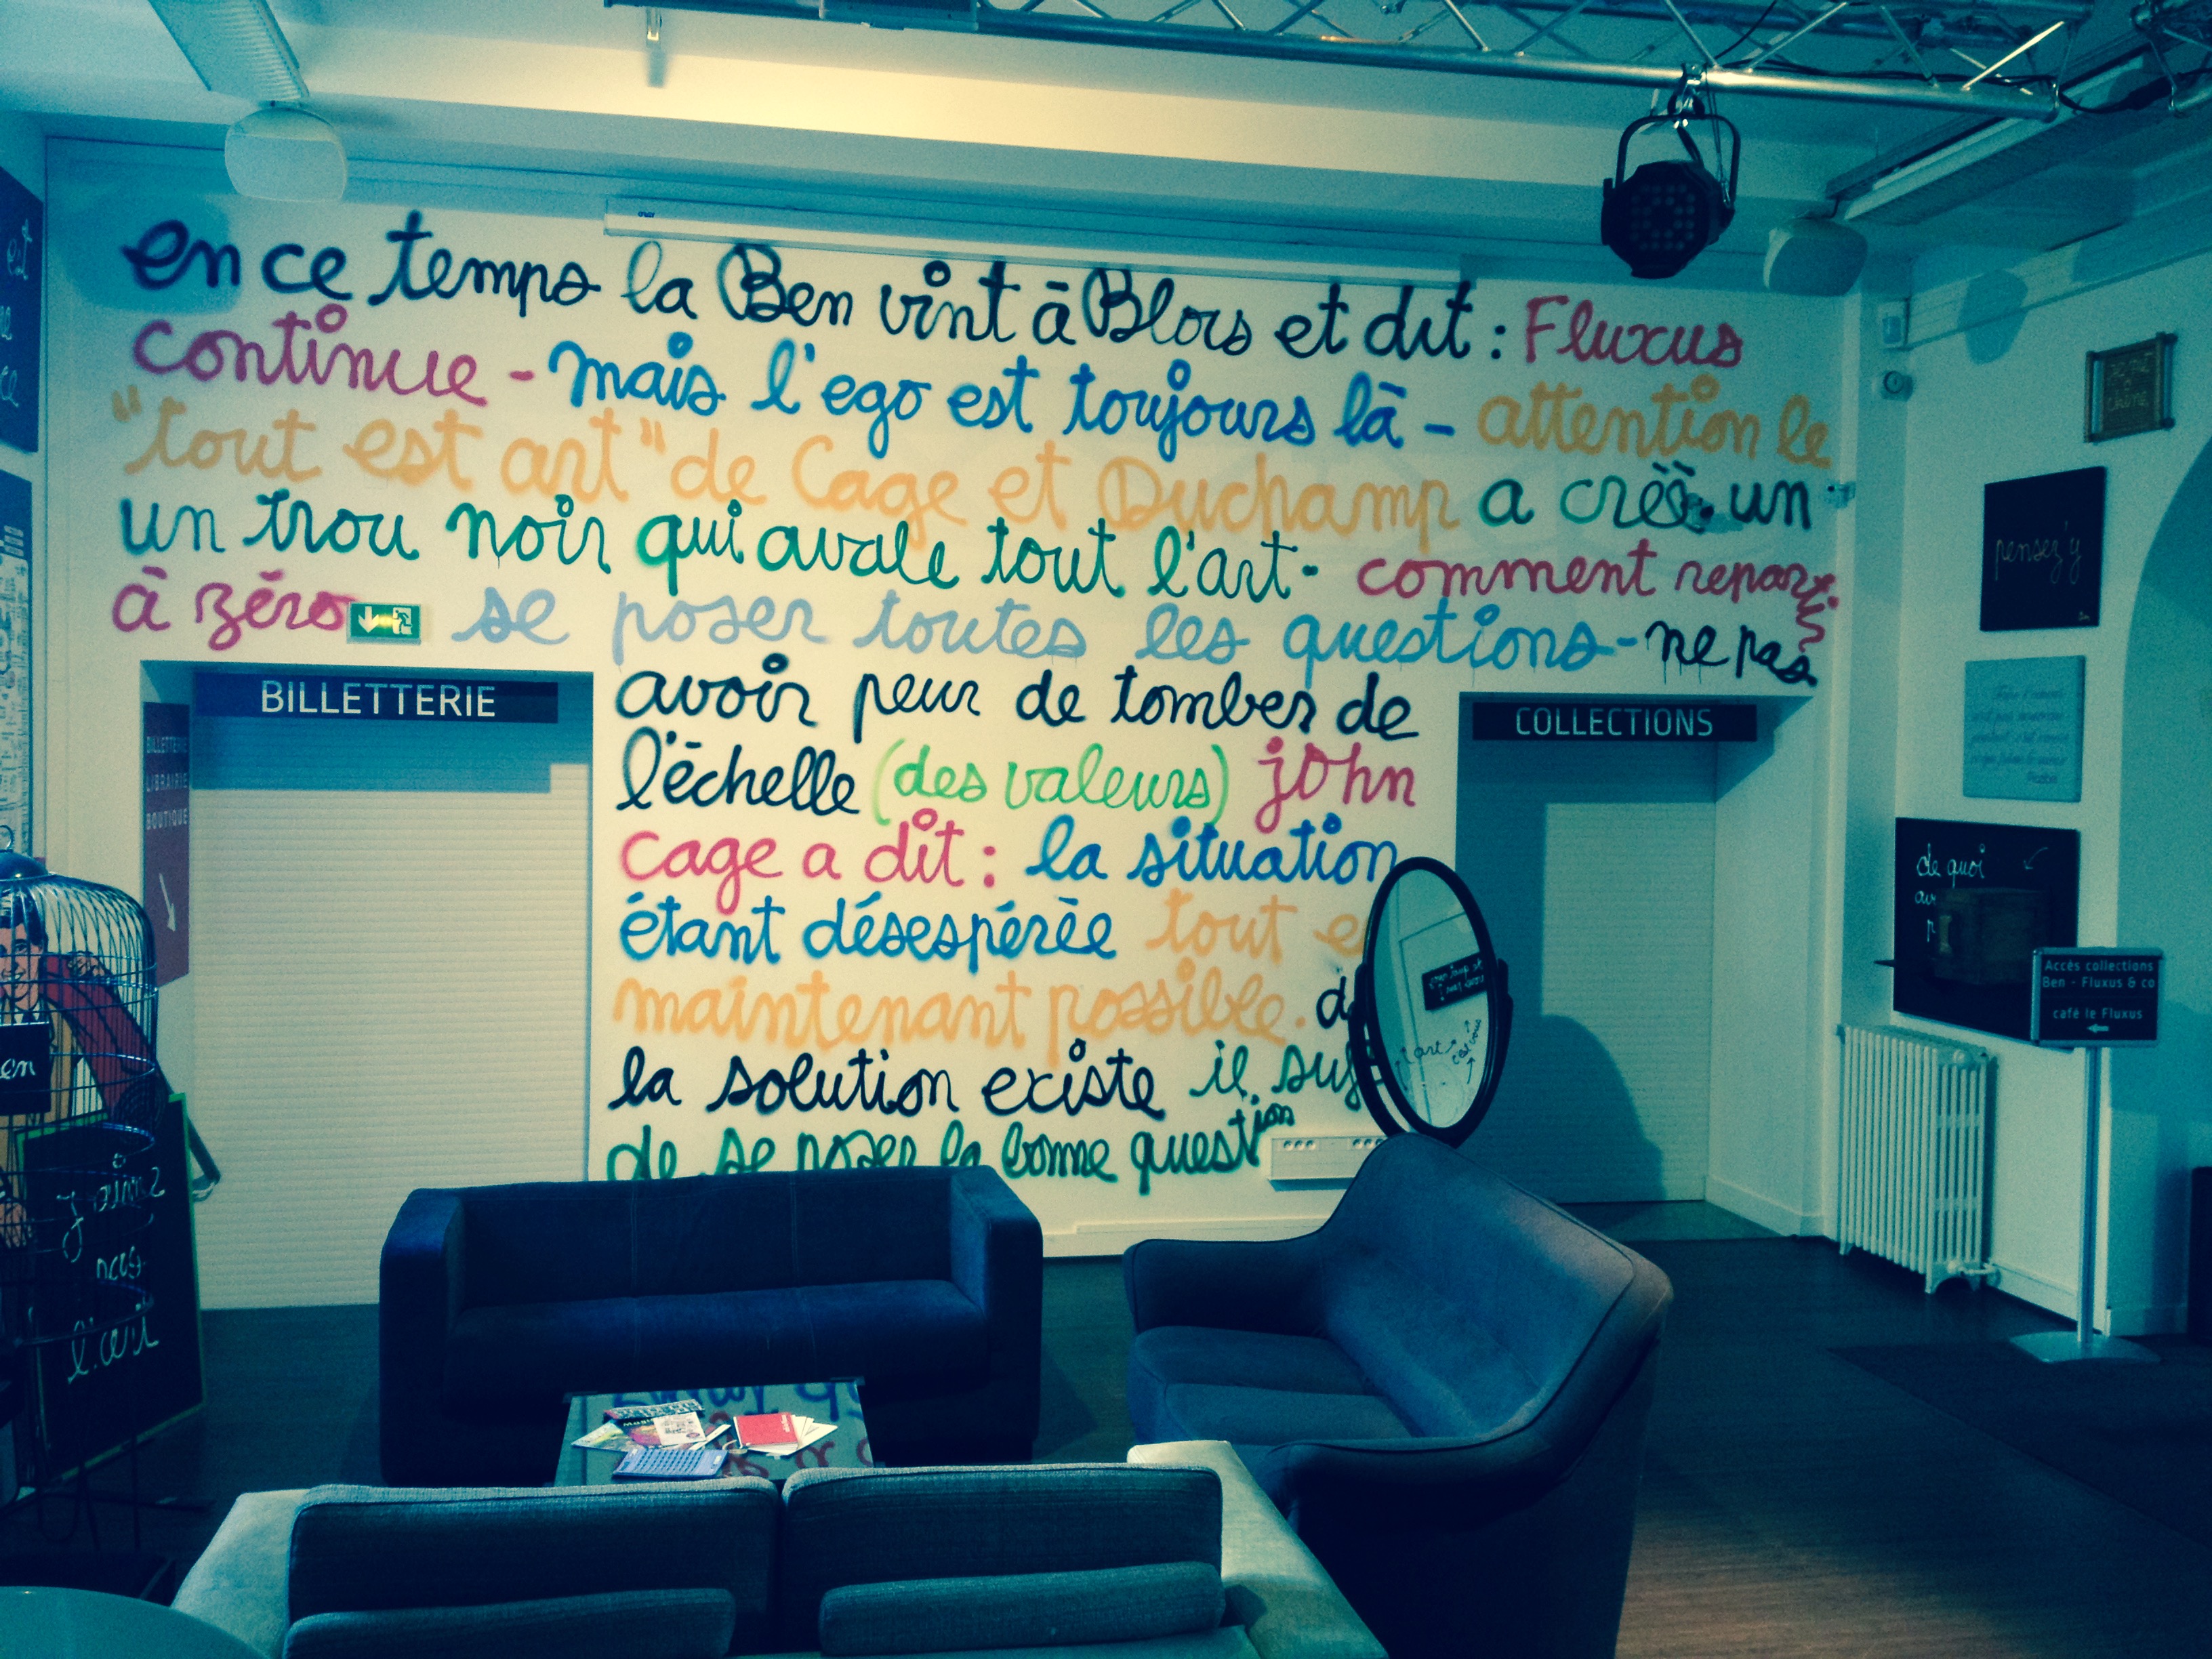 en ce temps la Ben vint à Blois et dit : Fluxus
continue - mais l'ego est toujours là - attention le
"tout est art" de Cage et Duchamp a créé un
un trou noir qui avale tout l'art - comment repartir
à zéro se poser toutes les questions - ne pas
avoir peur de tomber de
l'échelle (des valeurs) john
Cage a dit : la situation
étant désespérée tout
maintenant possible.
la solution existe il
de se poser la bonne question
BILLETTERIE
COLLECTIONS
BILLETTERIE
LIBRAIRIE
BOUTIQUE
pensez'y
de quoi
Accès collections
Ben - Fluxus & co
café le Fluxus
l'art